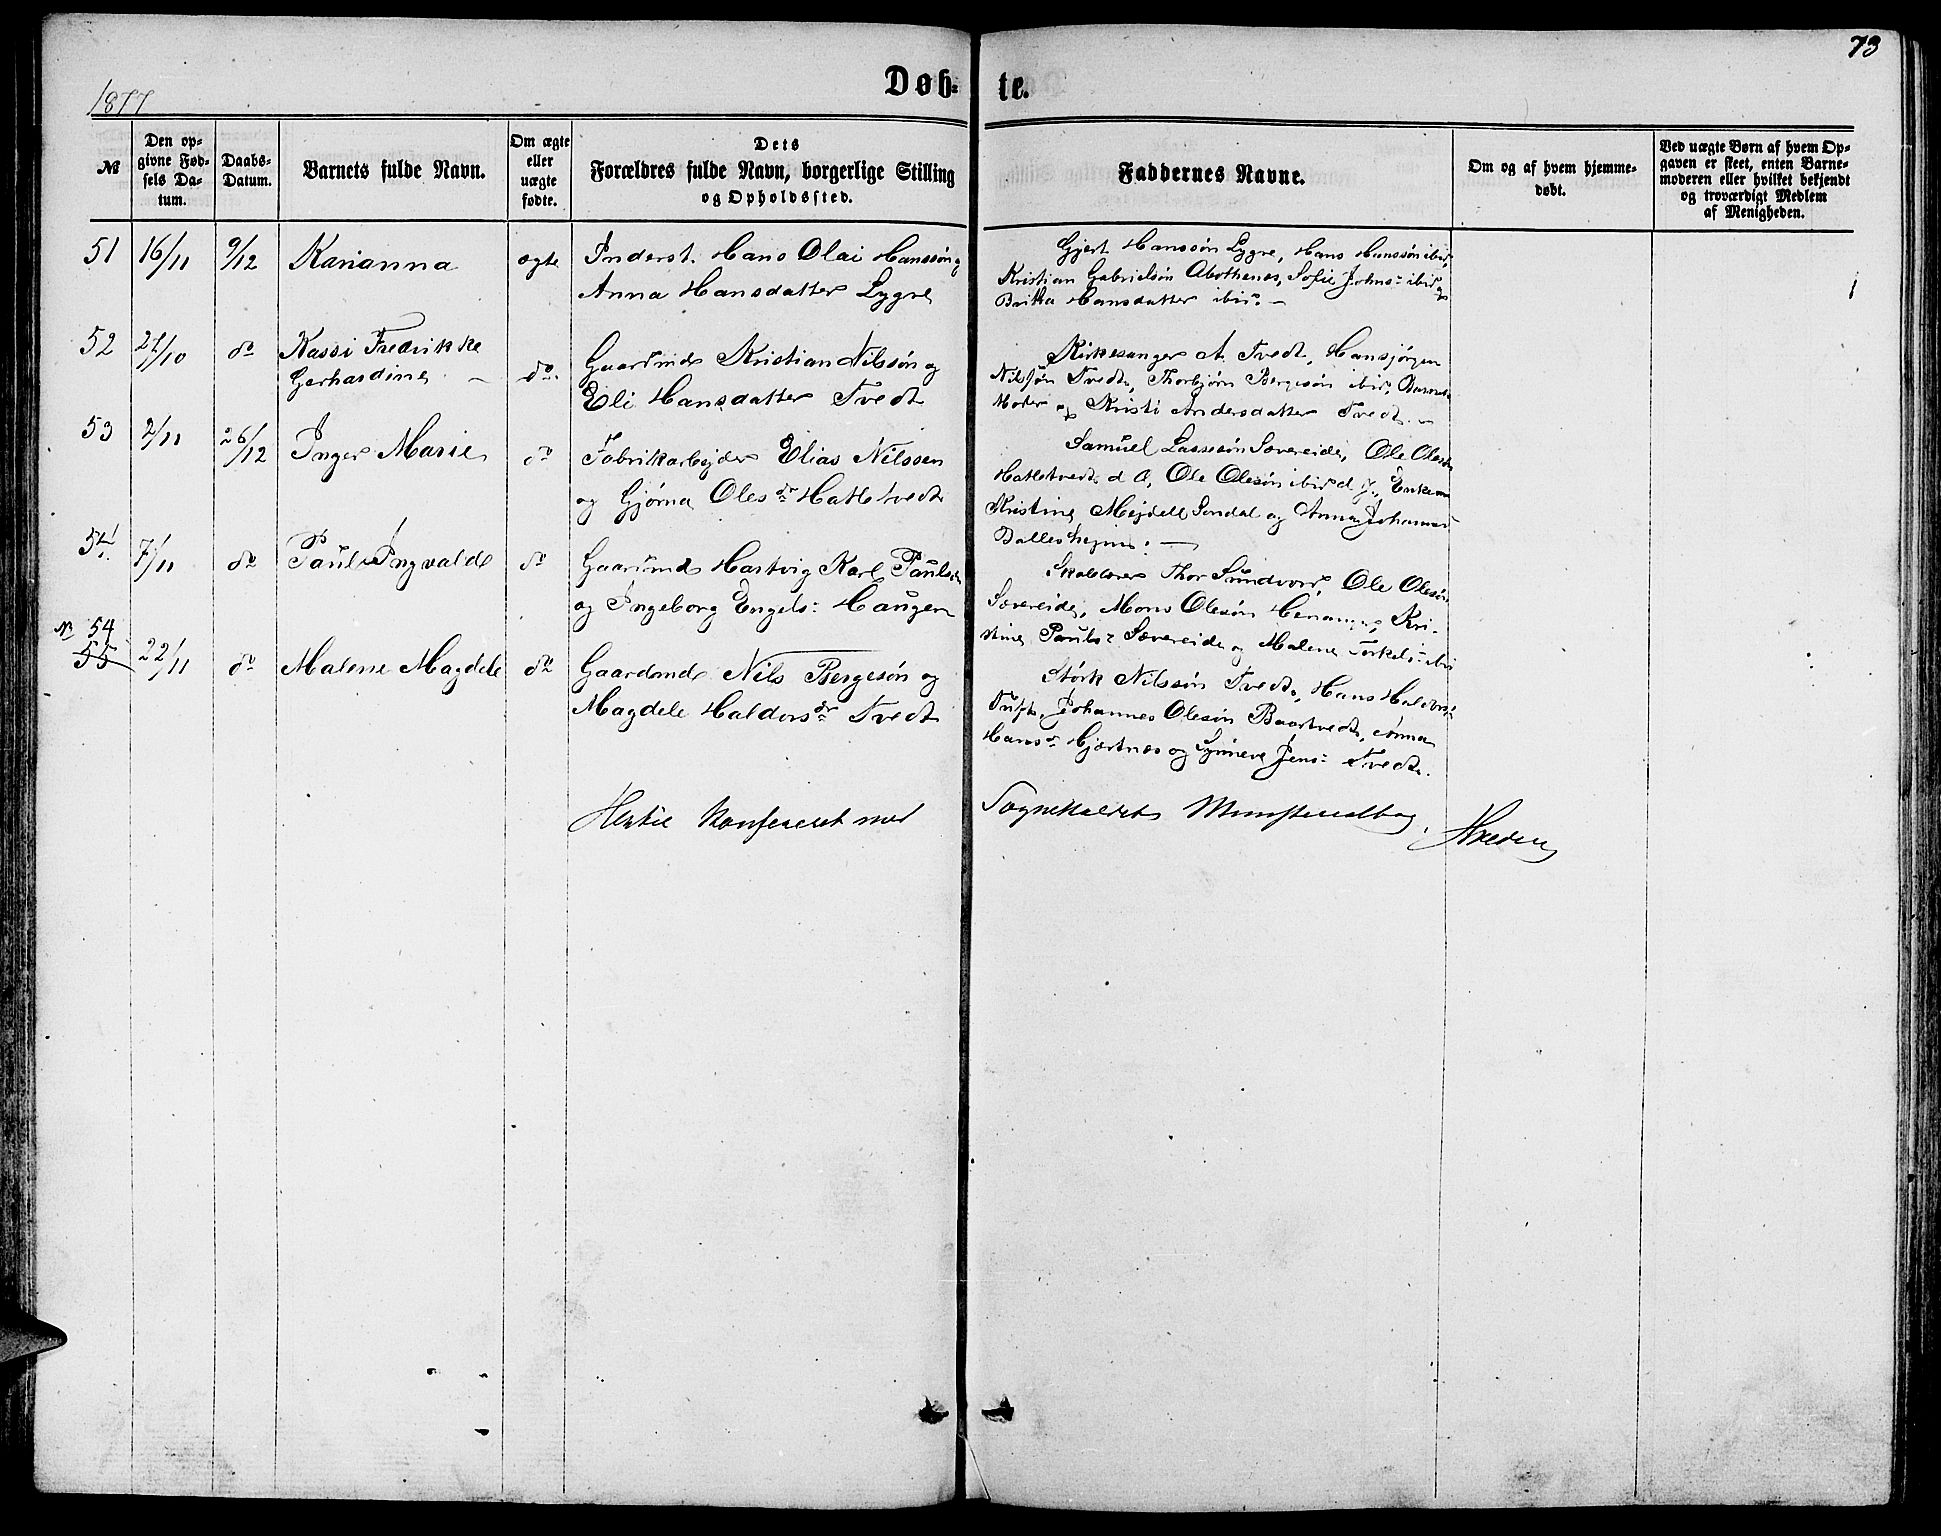 73
1877
Døb- te.
№
Den op-
givne Fød-
sels Da-
tum.
Daabs-
Datum.
Barnets fulde Navn.
Om ægte
eller
uægte
fødte.
Dets
Forældres fulde Navn, borgerlige Stilling
og Opholdssted.
Faddernes Navne.
Om og af hvem hjemme-
døbt.
Ved uægte Børn af hvem Op-
gaven er skeet, enten Barne-
moderen eller hvilket bekjendt
og troværdigt Medlem
af Menigheden.
51 16/11 9/12 Karianna ægte
Inderst. Hans Olai Hanssøn og
Anna Hansdatter Lygre
Gjert Hanssøn Lygre, Hans Hanssøn ibid,
Kristian Gabrielsøn Abothenes, Sofie Johns: ibid og
Britha Hansdatter ibid. –
52 21/10 do Kassi Fredrikke
Gerhardine – do.
Gaardmd Kristian Nilssøn og
Eli Hansdatter Tvedt
Kirkesanger A. Tvedt, Hansjørgen
Nilssøn Tvedt, Thorbjørn Bergesøn ibid, Barnets
Moder og Kristi Andersdatter Tvedt. –
53 2/11 26/12 Inger Marie do
Fabrikarbejder Elias Nilssen
og Gjørna Olesdr Hatletvedt
Samuel Lassesøn Sævereide, Ole Olesøn
Hatletvedt d. Æ, Ole Olesøn ibid d. y., Enkemd
Kristine Mejdell Sondal og Anna Johannes
Dalleshejm. —
54. 7/11 do Paul Ingvald do
Gaardmd Hartvig Karl Paulsøn
og Ingeborg Engels: Haugen
Skolelærer Thor Sundvor, Ole Olesøn
Sævereide, Mons Olesøn Henanger, Kri-
stine Pauls: Sævereide og Malene Torkels: ibid
№ 54
55 22/11 do Malene Magdele do
Gaardmd Nils Bergesøn og
Magdele Haldorsdr Tvedt
Størk Nilssøn Tvedt, Hans Haldors:
Tuft, Johannes Olesøn Baartvedt, Anna
Hansdr Hjertnæs og Synneve Jens: Tvedt.
Hertil konfereret med Sognekaldets Ministerialbog.